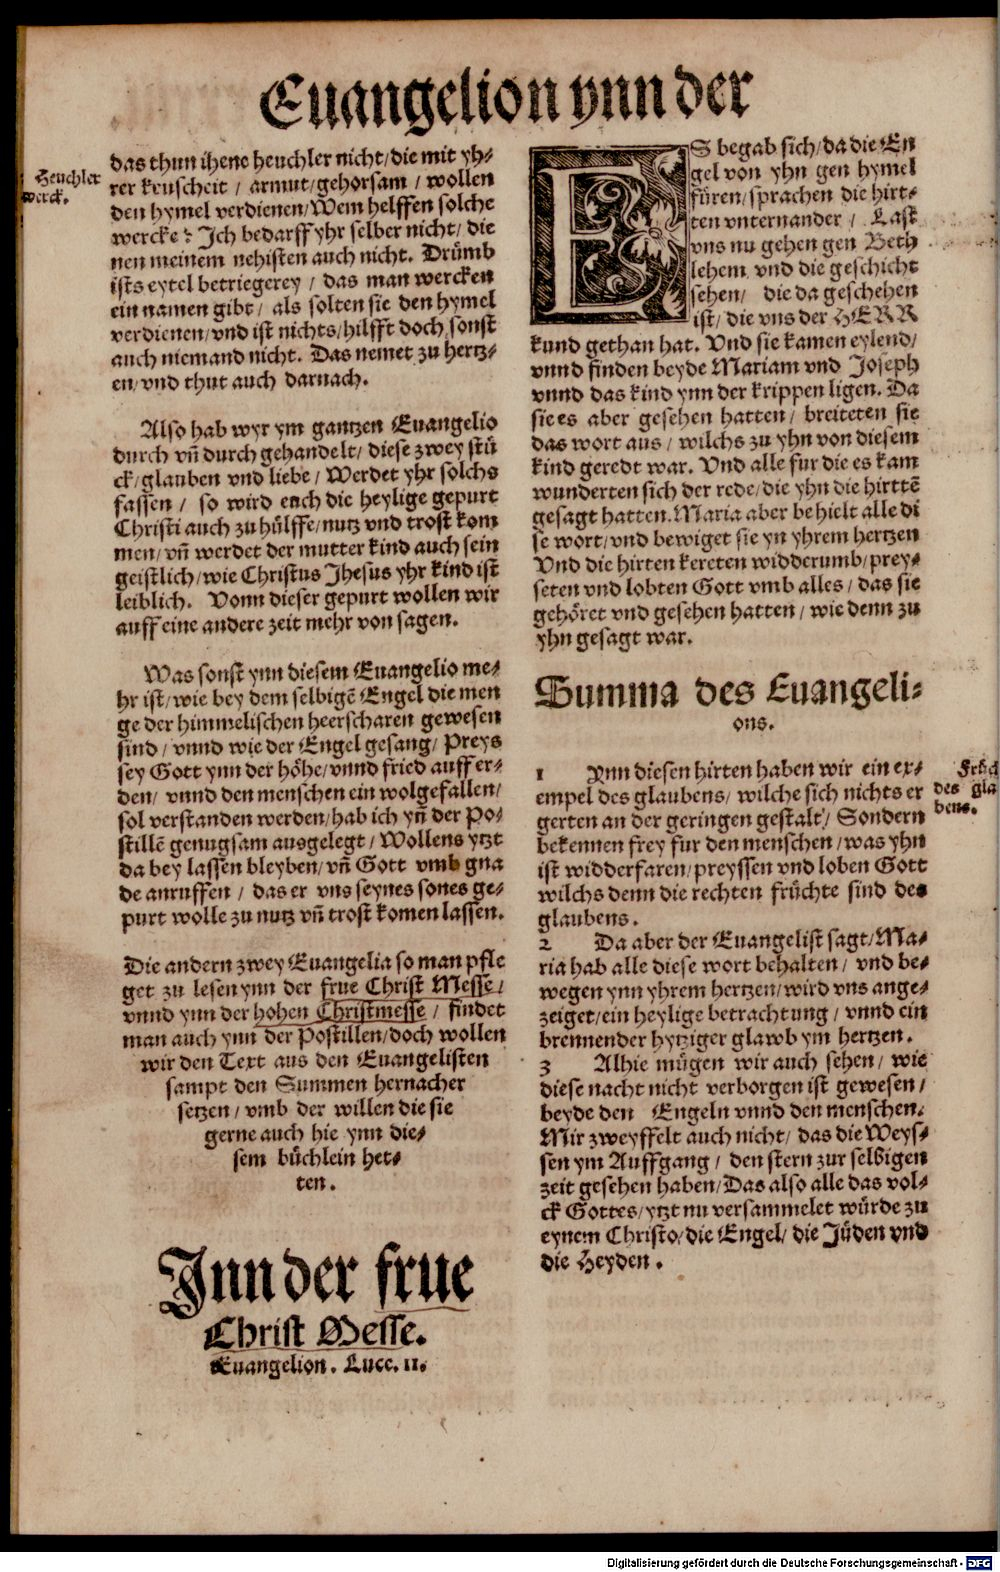 Euangelion ynn der
Heuchler
werck.
das thun ihene heuchler nicht/die mit yh⸗
rer keuscheit / armut/gehorsam / wollen
den hymel verdienen/Wem helffen solche
wercke? Ich bedarff yhr selber nicht/ die
nen meinem nehisten auch nicht. Drümb
ists eytel betriegerey / das man wercken
ein namen gibt / als solten sie den hymel
verdienen/vnd ist nichts/hilfft doch sonst
auch niemand nicht. Das nemet zu hertz⸗
en/vnd thut auch darnach.
Also hab wyr ym gantzen Euangelio
durch vñ durch gehandelt/ diese zwey stü
ck/glauben vnd liebe/ Werdet yhr solchs
fassen / so wird euch die heylige gepurt
Christi auch zu hülffe/nutz vnd trost kom
men/vñ werdet der mutter kind auch sein
geistlich/wie Christus Jhesus yhr kind ist
leiblich. Vonn dieser gepurt wollen wir
auff eine andere zeit mehr von sagen.
Was sonst ynn diesem Euangelio me⸗
hr ist/wie bey dem selbigẽ Engel die men
ge der himmelischen heerscharen gewesen
sind / vnnd wie der Engel gesang/ Preys
sey Gott ynn der höhe/vnnd fried auff er⸗
den/ vnnd den menschen ein wolgefallen/
sol verstanden werden/hab ich yñ der Po⸗
stillẽ genugsam ausgelegt/ Wollens ytzt
da bey lassen bleyben/vñ Gott vmb gna
de anruffen / das er vns seynes sones ge⸗
purt wolle zu nutz vñ trost komen lassen.
Die andern zwey Euangelia so man pfle
get zu lesen ynn der frue Christ Messe/
vnnd ynn der hohen Christmesse / findet
man auch ynn der Postillen/doch wollen
wir den Text aus den Euangelisten
sampt den Summen hernacher
setzen / vmb der willen die sie
gerne auch hie ynn die⸗
sem büchlein het⸗
ten.
Inn der frue
Christ Messe.
Euangelion. Luce. ii.
ES begab sich/da die En
gel von yhn gen hymel
füren/sprachen die hirt⸗
ten vnternander / Last
vns nu gehen gen Beth
lehem vnd die geschicht
sehen/ die da geschehen
ist/die vns der HERR
kund gethan hat. Vnd sie kamen eylend/
vnnd finden beyde Mariam vnd Joseph
vnnd das kind ynn der krippen ligen. Da
sie es aber gesehen hatten/ breiteten sie
das wort aus / wilchs zu yhn von diesem
kind geredt war. Vnd alle fur die es kam
wunderten sich der rede/die yhn die hirttẽ
gesagt hatten. Maria aber behielt alle di
se wort/vnd bewiget sie yn yhrem hertzen
Vnd die hirten kereten widderumb/prey⸗
seten vnd lobten Gott vmb alles / das sie
gehöret vnd gesehen hatten / wie denn zu
yhn gesagt war.
Summa des Euangeli⸗
ons.
1 Ynn diesen hirten haben wir ein ex⸗
empel des glaubens/ wilche sich nichts er
gerten an der geringen gestalt/ Sondern
bekennen frey fur den menschen /was yhn
ist widderfaren/preyssen vnd loben Gott
wilchs denn die rechten früchte sind des
glaubens.
2 Da aber der Euangelist sagt/Ma⸗
ria hab alle diese wort behalten/ vnd be⸗
wegen ynn yhrem hertzen/wird vns ange⸗
zeiget/ein heylige betrachtung / vnnd ein
brennender hytziger glawb ym hertzen.
3 Alhie mügen wir auch sehen/ wie
diese nacht nicht verborgen ist gewesen/
beyde den Engeln vnnd den menschen.
Mir zweyffelt auch nicht/ das die Weys⸗
sen ym Auffgang / den stern zur selbigen
zeit gesehen haben/Das also alle das vol⸗
ck Gottes/ytzt nu versammelet würde zu
eynem Christo/die Engel/ die Jüden vnd
die Heyden.
Früch
des gla
bens.
Digitalisierung gefördert durch die Deutsche Forschungsgemeinschaft - DFG